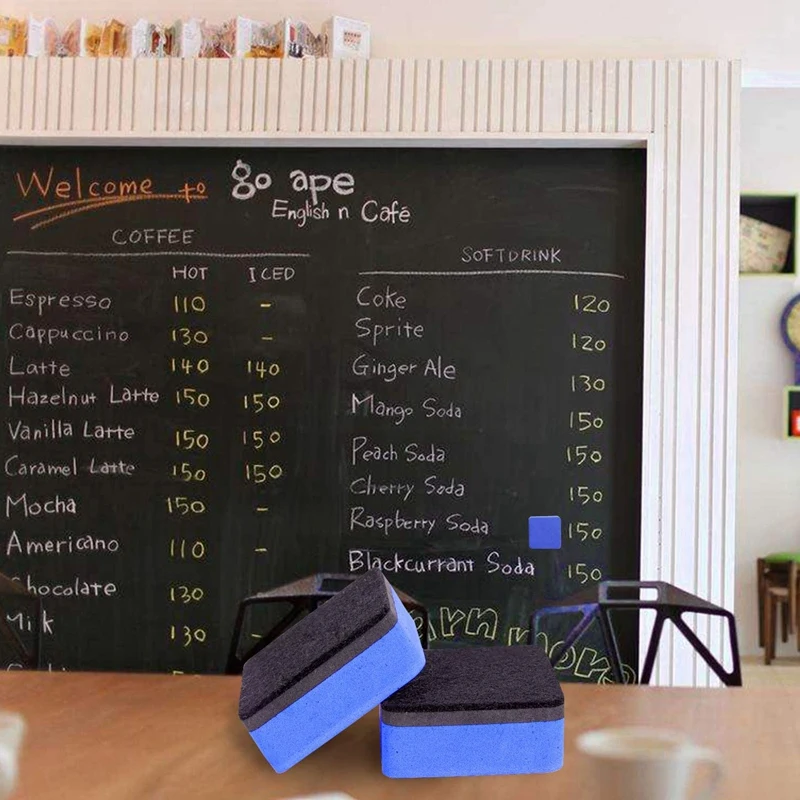 Welcome to go ape
English n Café
COFFEE
HOT ICED
Espresso 110 -
Cappuccino 130 -
Latte 140 140
Hazelnut Latte 150 150
Vanilla Latte 150 150
Caramel Latte 150 150
Mocha 150 -
Americano 110 -
Chocolate 130
Milk 130 -
SOFTDRINK
Coke 120
Sprite 120
Ginger Ale 130
Mango Soda 150
Peach Soda 150
Cherry Soda 150
Raspberry Soda 150
Blackcurrant Soda 150
more